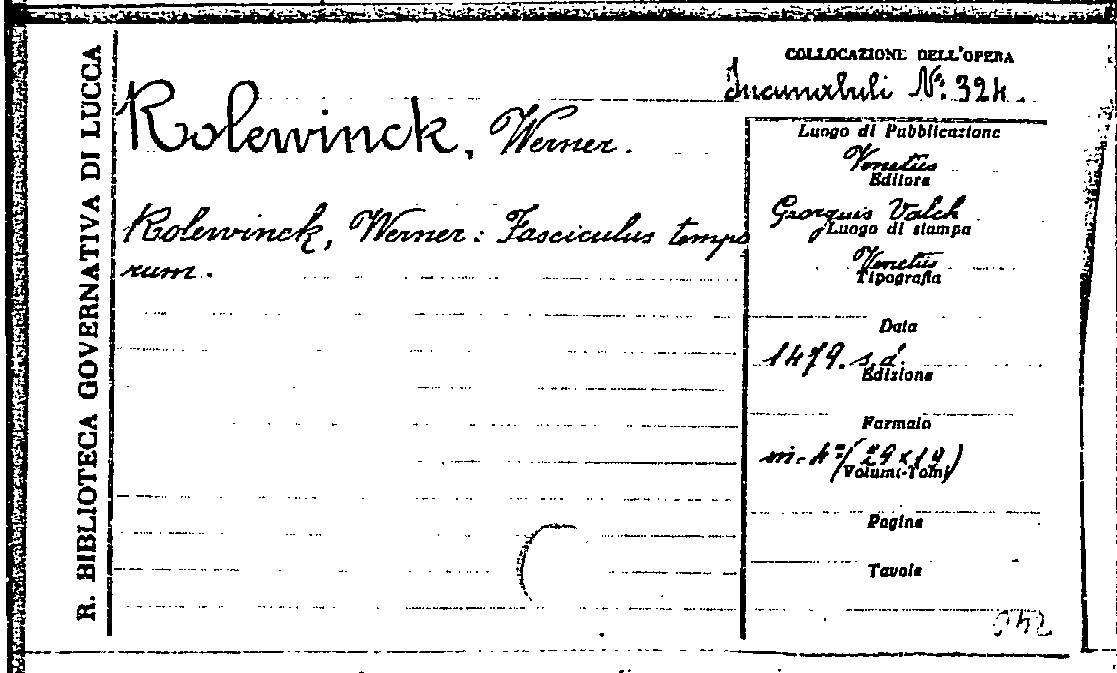 R. BIBLIOTECA GOVERNATIVA DI LUCCA
COLLOCAZIONE DELL'OPERA
Incunabuli N.º 324.
Rolewinck, Werner.
Rolewinck, Werner: Fasciculus tempo
rum.
Luogo di Pubblicazione
Venetiis
Editore
Georguis Valch
Luogo di stampa
Venetiis
Tipografia
Data
1479. s.d.
Edizione
Formato
in-4º (29 x 19)
Volumi-Tomi
Pagine
Tavole